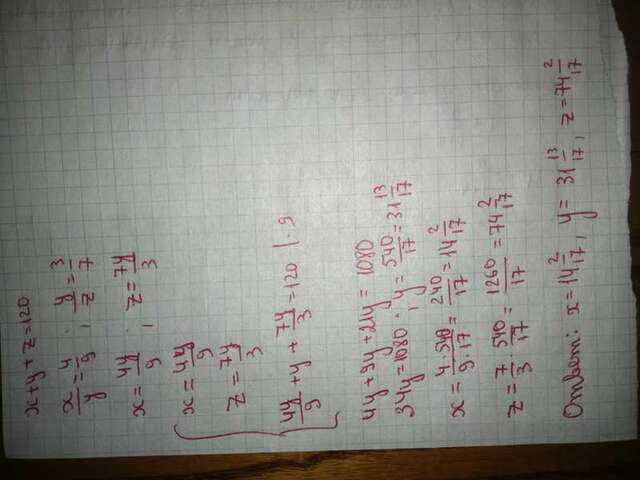 x+y+z=120
x/y=4/9, y/z=3/7
x=4y/9, z=7y/3
x=4y/9
z=7y/3
4y/9+y+7y/3=120 |·9
4y+9y+21y=1080
34y=1080, y=540/17=31 13/17
x=4·540/9·17=240/17=14 2/17
z=7/3·540/17=1260/17=74 2/17
Ответ: x=14 2/17, y=31 13/17, z=74 2/17